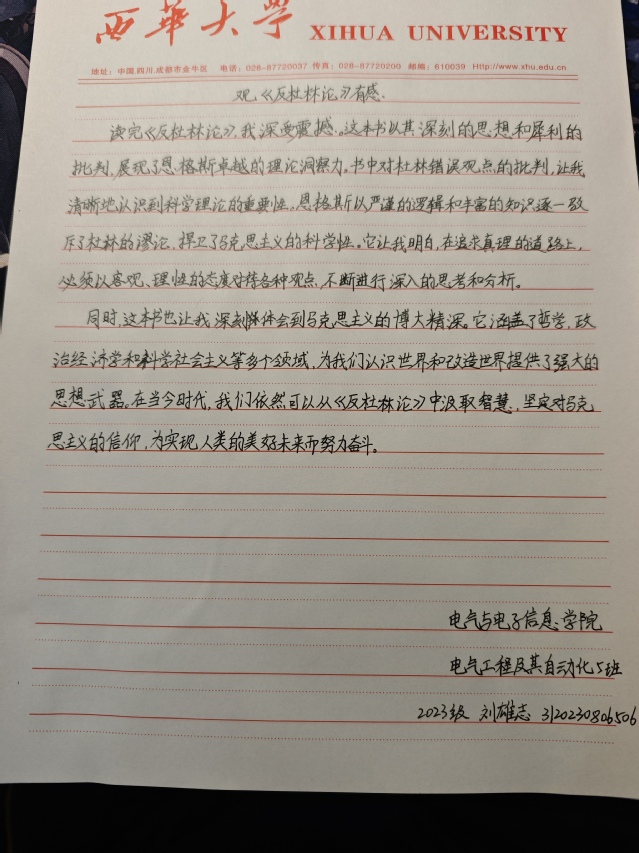 西華大学 XIHUA UNIVERSITY
地址：中国.四川.成都市金牛区 电话：028-87720037 传真：028-87720200 邮编：610039 Http://www.xhu.edu.cn
观《反杜林论》有感.
读完《反杜林论》，我深受震撼。这本书以其深刻的思想和犀利的
批判，展现了恩格斯卓越的理论洞察力。书中对杜林错误观点的批判，让我
清晰地认识到科学理论的重要性。恩格斯以严谨的逻辑和丰富的知识逐一驳
斥了杜林的谬论，捍卫了马克思主义的科学性。它让我明白，在追求真理的道路上，
必须以客观、理性的态度对待各种观点，不断进行深入的思考和分析。
同时，这本书也让我深刻体会到马克思主义的博大精深。它涵盖了哲学，政
治经济学和科学社会主义等多个领域，为我们认识世界和改造世界提供了强大的
思想武器。在当今时代，我们依然可以从《反杜林论》中汲取智慧，坚定对马克
思主义的信仰，为实现人类的美好未来而努力奋斗。
电气与电子信息学院
电气工程及其自动化5班
2023级 刘雄志 3120230806506